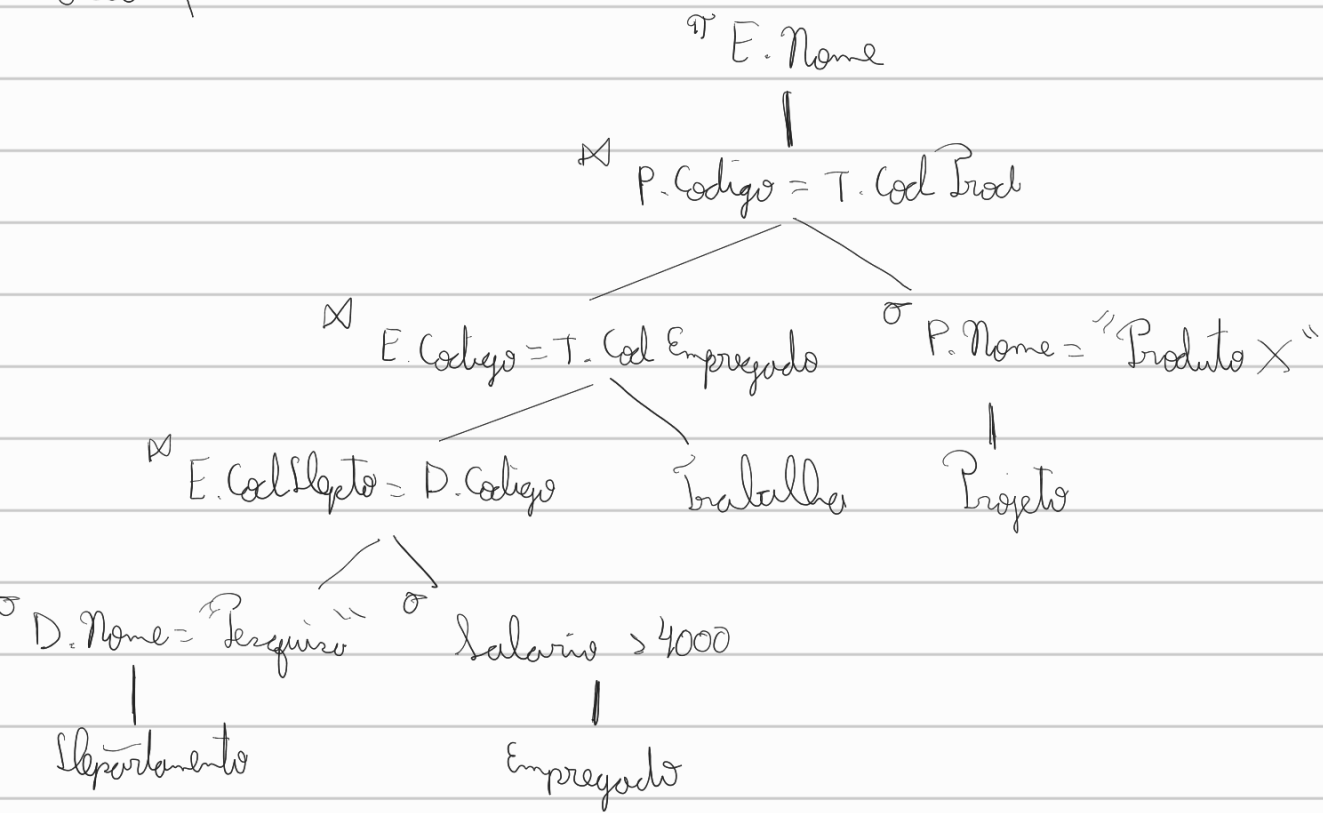 π E.Nome
⋈ P.Codigo = T.CodProd
⋈ E.Codigo = T.CodEmpregado σ P.Nome = "Produto X"
⋈ E.CodDepto = D.Codigo Trabalha Projeto
σ D.Nome = "Pesquisa" σ Salario > 4000
Departamento Empregado